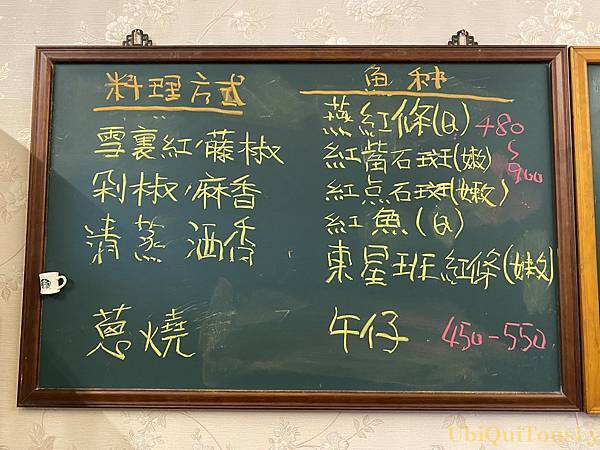 料理方式
雪裏紅/藤椒
剁椒/麻香
清蒸 洒香
蔥燒
魚种
燕紅條(Q) 480
紅萵石斑(嫩) 5
紅点石斑(嫩) 900
紅魚(Q)
東星班紅條(嫩)
午仔 450-550
UbiQuiTousLy